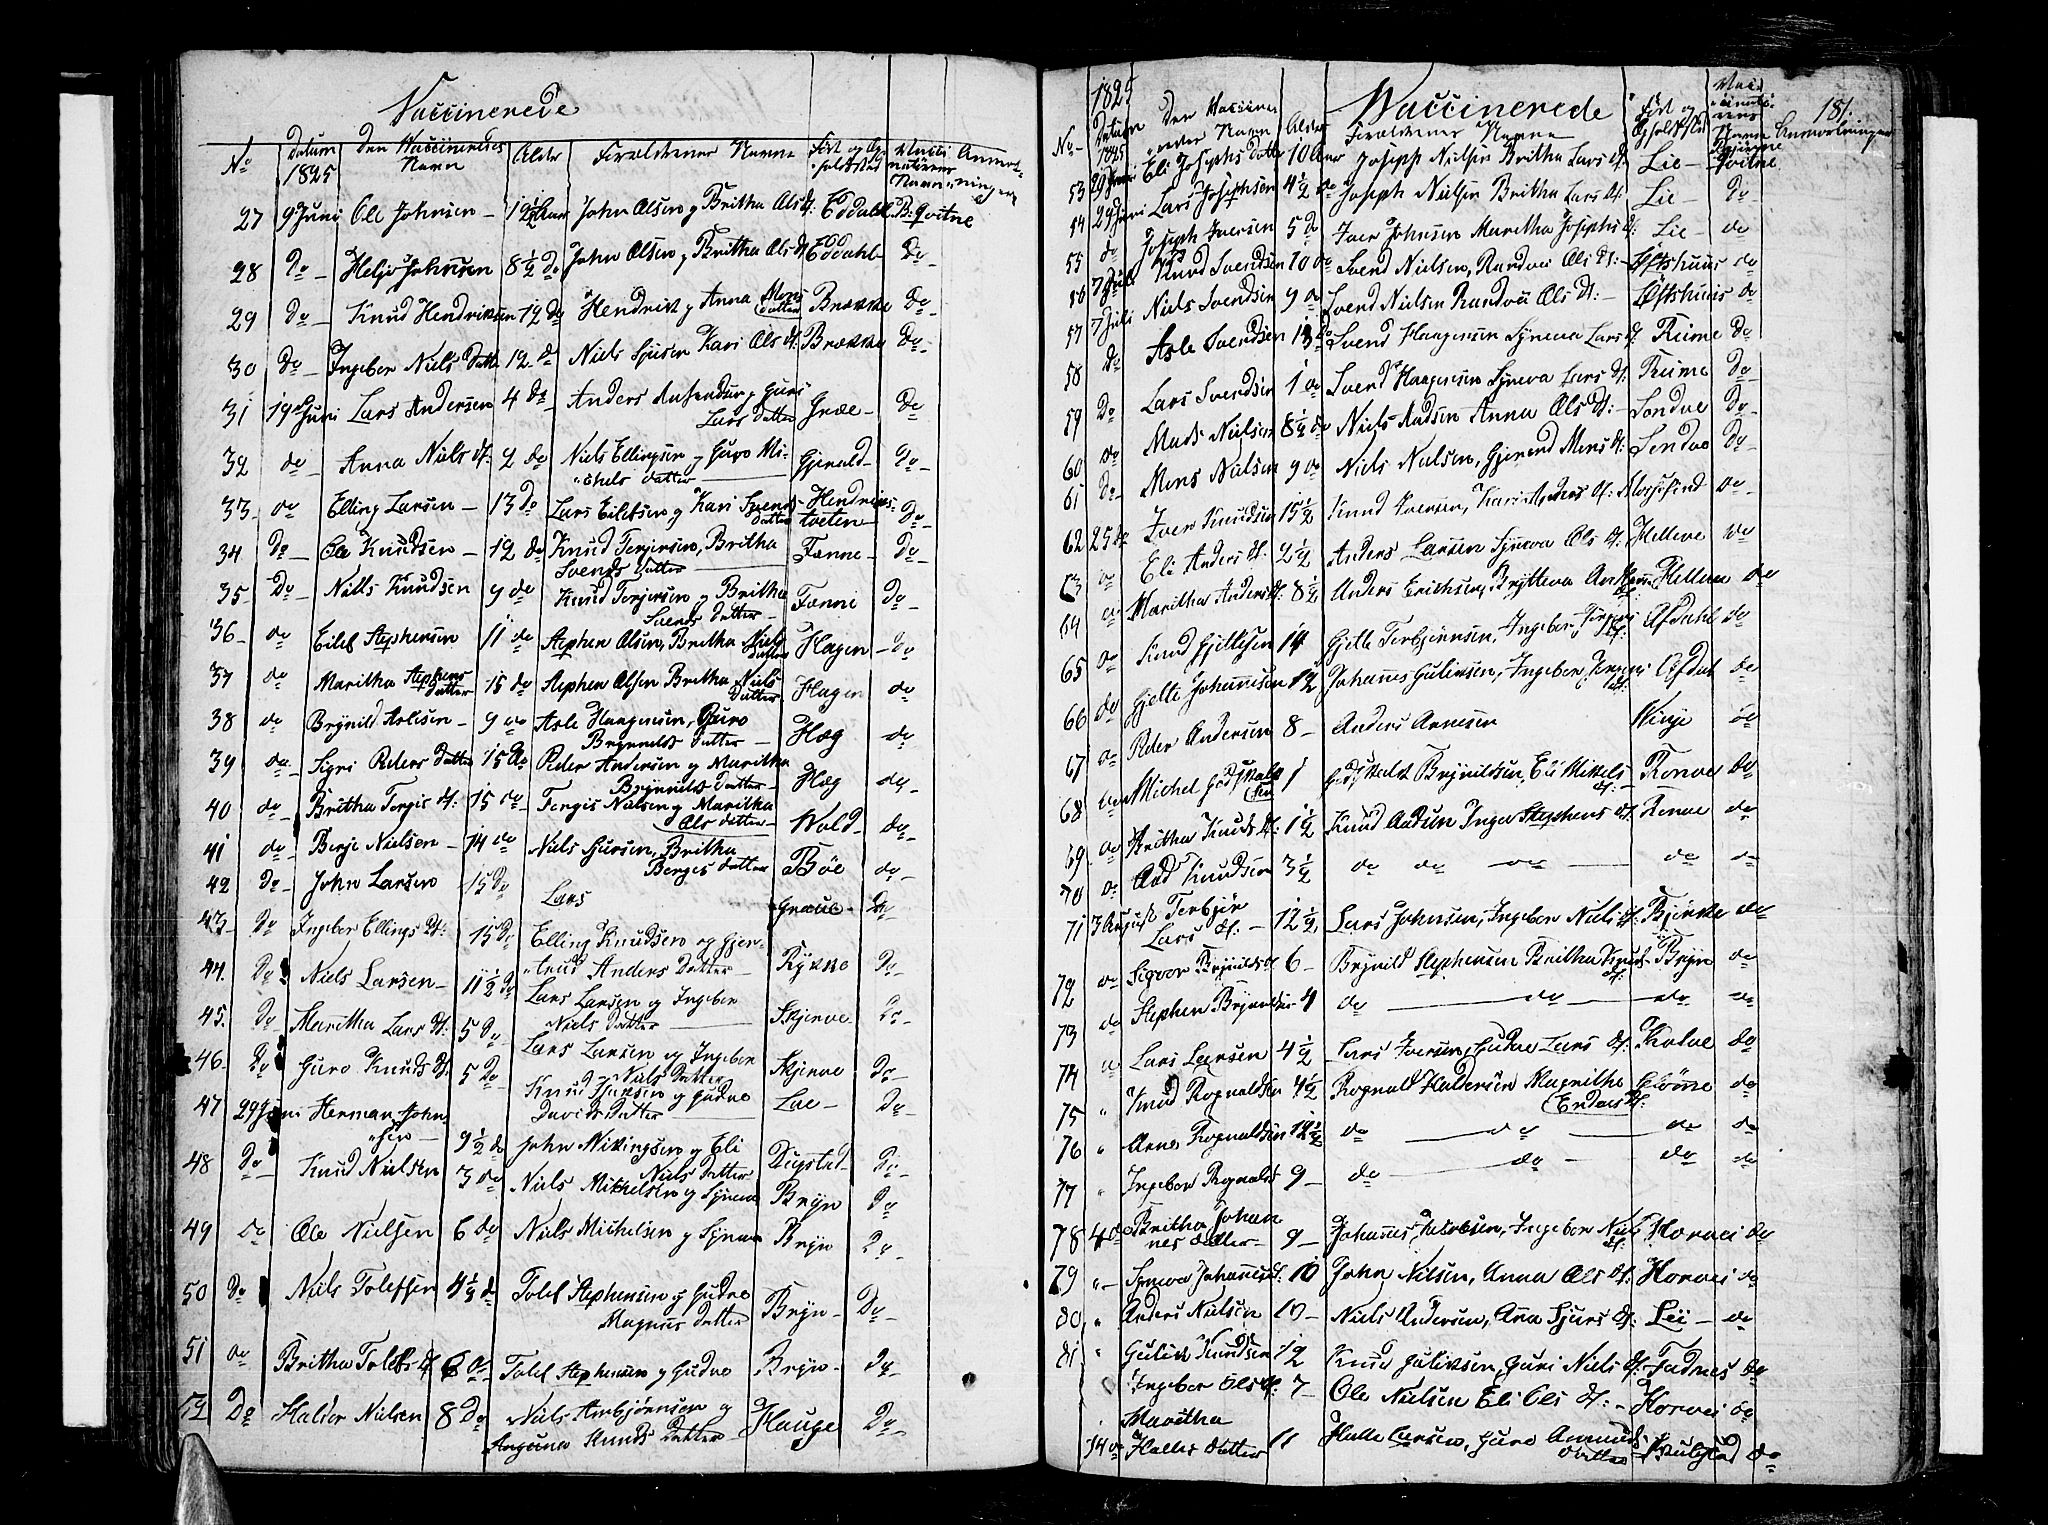 Vaccinerede
No Datum 1825 Den Vaccineredes Navn Alder Forældrenes Navne Født og Opholdsted Anmærkninger
27 9 Juni Ole Johnsen 1½ Aar John Olsen og Britha Olsd: Eddahl B: Qvitne
28 Do Helje Johnsen 8½ Do John Olsen og Britha Ols d: Eddahl Do
29 Do Knud Hendriksen 12 Do Hendrick og Anna Mons datter Brække Do
30 Do Ingebor Niels Datter 12 do Niels Sjursen Kari Ols d: Brække Do
31 19 Juni Lars Andersen 4 Do Anders og Guri
Lars datter Græe Do
32 do Anna Niels d: 2 do Niels Ellingsen og Guro Mi-
chels datter Gjerald Do
33 do Elling Larsen 13 Do Lars Eilefsen og Kari Svends datter Hendres-
tveten Do
34 Do Ole Knudsen 12 do Knud Torjersen, Britha
Svends datter Fænne Do
35 Do Niels Knudsen 9 do Knud Torjersen og Britha
Svends datter Fænne Do
36 do Eilef Stephensen 11 do Stephen Olsen, Britha Niels datter Hagen do
37 do Maritha Stephens datter 15 do Stephen Olsen Britha Niels datter Hagen do
38 do Brynild Aslesen 9 do Asle Haagensen, Guro
Brynilds datter Hæg do
39 do Sigri Peders datter 15 do Peder Andersen og Maritha
Brynilds datter Hæg do
40 do Britha Torgis d: 15 do Torgis Nielsen og Maritha
Ols datter Wold do
41 do Berje Nielsen 14 do Niels Sjursen, Britha
Berges datter Bøe do
42 Do John Larsen 15 Do Lars Graue Do
43 Do Ingebor Ellings d: 15 Do Elling Knudsen og Gjer-
trud Anders datter Rykke Do
44 Do Niels Larsen 11½ Do Lars Larsen og Ingebor
Niels datter Skjerve Do
45 Do Maritha Lars d: 5 Do Lars Larsen og Ingebor
Niels datter Skjerve Do
46 Do Guro Knuds d: 5 Do Knud Sjursen og Gudve
Davids datter Lae Do
47 29 Juni Herman John-
sen 9½ do John Vikingsen og Eli
Niels datter Dugstad Do
48 Do Knud Nielsen 3 do Niels Mikkelsen og Syneva Bryn Do
49 Do Ole Nielsen 6 do Niels Michelsen og Syneva Bryn Do
50 Do Niels Tolefsen 4½ do Tolef Stephensen og Gudve
Magnus datter Bryn Do
51 do Britha Tolefs d 6 do Tolef Stephensen og Gudve Bryn Do
52 Do Haldor Nielsen 8 Do Niels Anbjørnsen og
Knuds datter Hauge Do
181.
1825 Vaccinerede
No Datum 1825 Den Vaccine-
redes Navn Alder Forældrenes Navne Født og Opholdsted Navn Anmærkninger
53 29 Juni Eli Josephs datter 10 Aar Joseph Nielsen Britha Lars d: Lie Qvitne
54 29 Juni Lars Josephsen 4½ do Joseph Nielsen Britha Lars d: Lie do
55 do Joseph Iversen 5 do Iver Johnsen Maritha Josephs d: Lie do
56 7 Juli Knud Svendsen 10 do Svend Nielsen, Randvei Ols d: Øfshuus do
57 7 Juli Niels Svendsen 9 do Svend Nielsen Randvei Ols d: Øfshuus do
58 do Asle Svendsen 13 do Svend Haagensen Syneva Lars d: Rume do
59 Do Lars Svendsen 1 do Svend Haagensen Syneva Lars d: Rume Do
60 do Mads Nielsen 8½ do Niels Madsen Anna Ols d: Sondve Do
61 Do Mons Nielsen 9 do Niels Nielsen, Gjerend Mons d: Sondve Do
62 25 do Iver Knudsen 15½ Knud Iversen, Kari d: do
63 do Eli Anders d: 2½ Anders Larsen Syneva Ols d: Helleve do
64 do Maritha Anders d: 8½ Anders Erichsen, Bryteva Helleve do
65 do Knud Gjellesen 14 Gjelle Torbjørnsen, Ingebor Afdahl do
66 do Gjelle Johannesen 12 Johannes Guliksen, Ingebor Afdal do
67 do Peder Andersen 8 Anders Arnesen Vinje do
68 do Michel Godskalk
sen 1 Godskalk Brynildsen, Eli Mikkels d: Ronve do
69 do Britha Knuds d: 1½ Knud Andsen Inger Stephens d: Ronve do
70 do And Knudsen 3½ do do do do do
71 3 August Torbjør
Lars d: 12½ Lars Johnsen, Ingebor Niels d: Bjørke do
72 do Sigvor Brynilds d 6 Brynild Stephensen Britha Knuds d: Bryn do
73 do Stephen Brynildsen 4 do do do do
74 do Lars Larsen 4½ Lars Iversen, Gudve Lars d: Kolve do
75 " Knud Rognaldsen 4½ Rognald Haldorsen Magrithe
Enders d: Gjørne do
76 " Arne Rognaldsen 12½ do do do do
77 " Ingebor Rognalds 9 do do do do
78 4 do Britha Johan
nes datter 9 Johannes Jacobsen, Ingebor Niels d: Horvei do
79 " Syneva Johannes d: 10 John Nilsen, Anna Ols d: Horvei do
80 " Anders Nielsen 10 Niels Andersen, Ana Sjurs d: Lii do
81 " Gulick Knudsen 12 Knud Guliksen, Guri Niels d: Fadnes do
Ingebor Ols d: 7 Ole Nielsen Eli Ols d: Horvei do
Maritha
14 do Halles datter 11 Halle Larsen, Guro Amunds
datter do